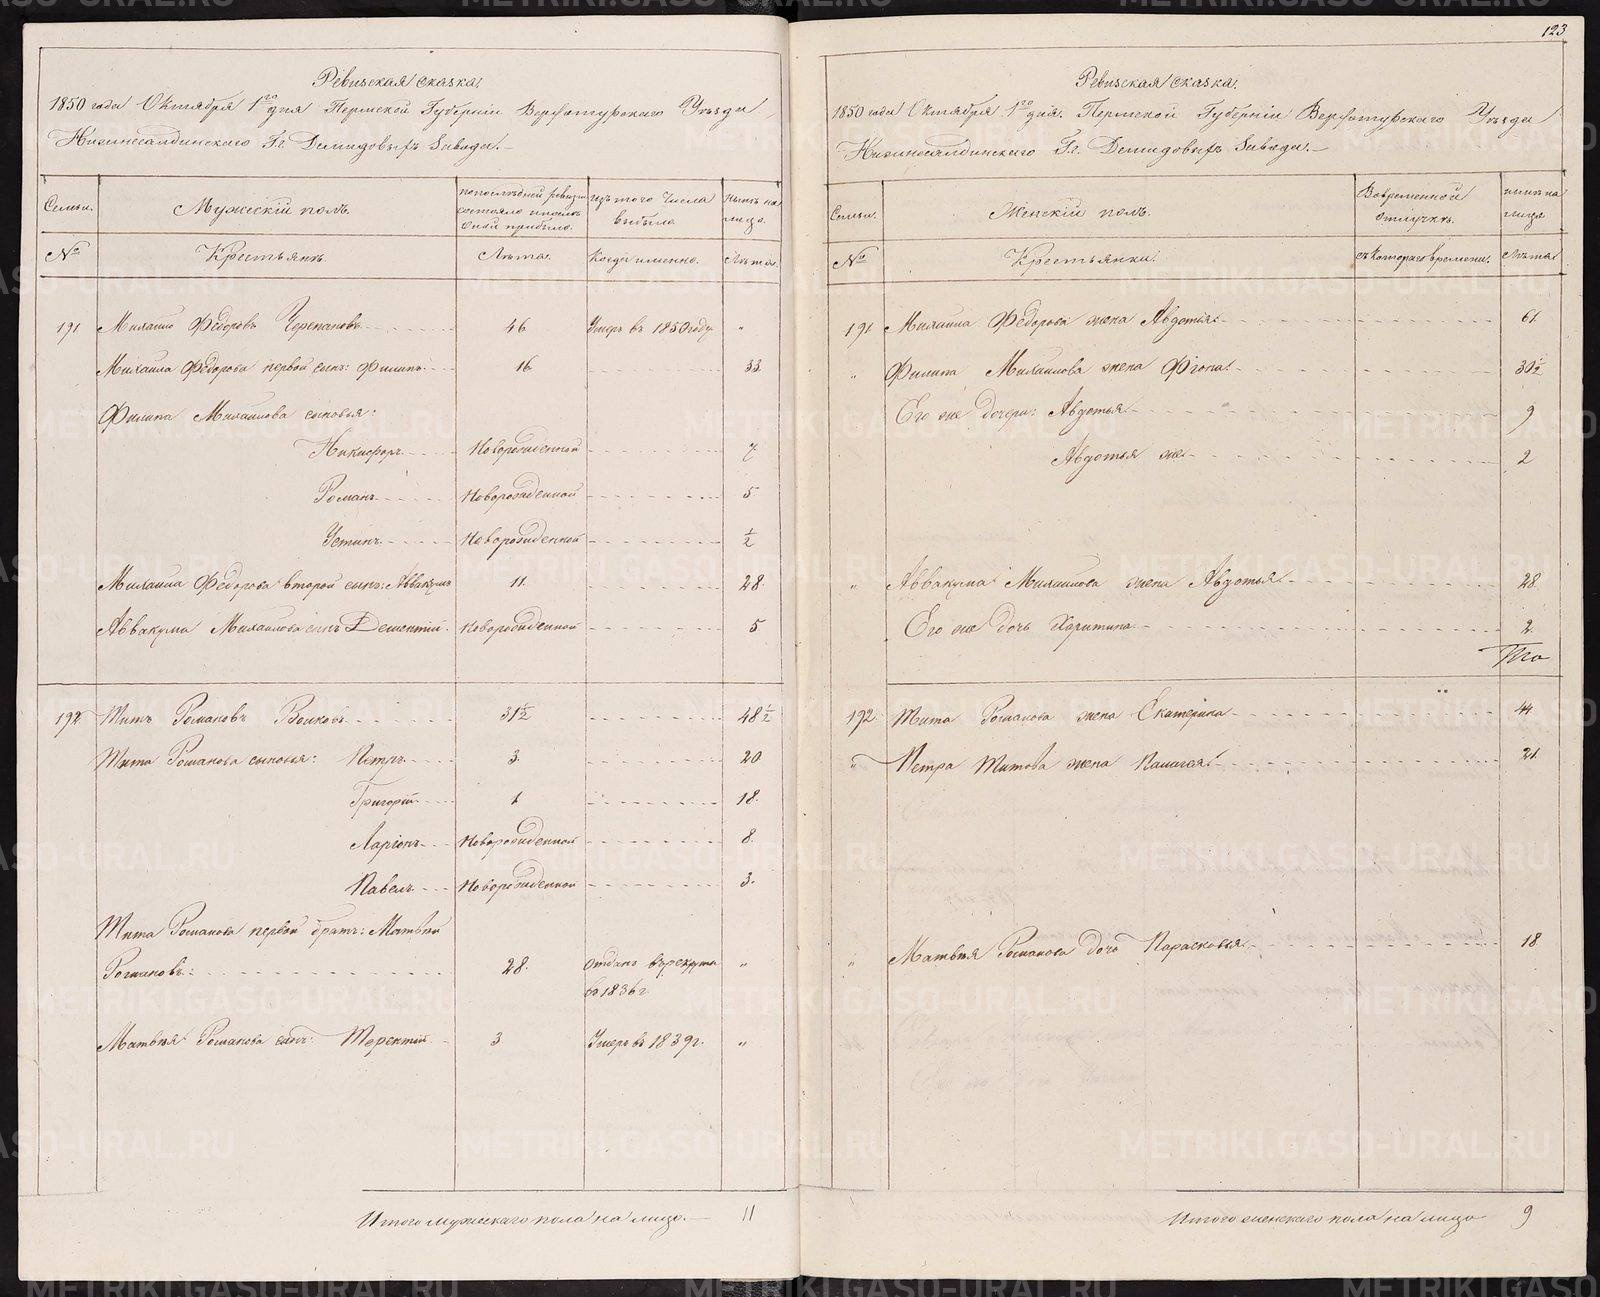 Ревизская сказка.
1850 года Октября 1го дня Пермской Губернiи Верхотурскаго Уѣзда
Нижнесалдинскаго Гг. Демидовыхъ Завода.
Семьи. Мужескiй полъ. по последней ревизiи состояло и послѣ оной прибыло. изъ того числа выбыло. нынѣ на лицо.
№ Крестьянъ. Лѣта. Когда именно. Лѣта.
191 Михайло Федоровъ Черепановъ 46 Умеръ въ 1850 году „
Михаила Федорова первой сынъ: Филипъ 16 33
Филипа Михаилова сыновья:
Никифоръ Новорожденной 7
Романъ Новорожденной 5
Устинъ Новорожденной ½
Михаила Федорова второй сынъ: Аввакумъ 11 28
Аввакума Михаилова сынъ Дементiй Новорожденной 5
192 Титъ Романовъ Волковъ 31½ 48½
Тита Романова сыновья: Петръ 3. 20
Григорiй 1 18.
Ларiонъ Новорожденной 8.
Павелъ Новорожденной 3.
Тита Романова первой братъ: Матвѣй
Романовъ: 28. Отданъ в рекруты „
въ 1836 г.
Матвѣя Романова сынъ: Терентiй 3 Умеръ въ 1839 г. „
Итого мужескаго пола на лицо 11
123
Ревизская сказка.
1850 года Октября 1го дня. Пермской Губернiи Верхотурскаго Уѣзда
Нижнесалдинскаго Гг. Демидовыхъ Завода.
Семьи. Женскiй полъ. Вовременной отлучкѣ. нынѣ на лицо
№ Крестьянки. съ котораго времени. Лѣта
191 Михаила Федорова жена Авдотья 61
„ Филипа Михаилова жена Фiона 30½
Его же дочери: Авдотья 9
Авдотья же 2
„ Аввакума Михаилова жена Авдотья 28
Его же дочь Харитина 2
192 Тита Романова жена Екатерина 44
„ Петра Титова жена Палагея 21
„ Матвѣя Романова дочь Парасковья 18
Итого женскаго пола на лицо 9